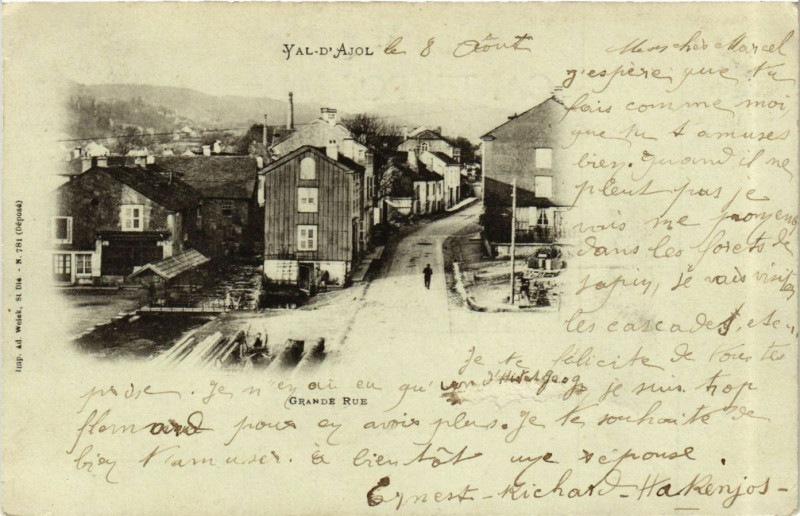 VAL-D'AJOL le 8 Août
Mon cher Marcel
j'espère que tu
fais comme moi
que tu t'amuses
bien. Quand il ne
pleut pas je
vais me
dans les forets de
sapin, je vais visiter
les cascades, etc.
Je te félicite de tous tes
prix. Je n'en ai eu qu'un d'Hist Geog je suis trop
pour en avoir plus. Je te souhaite de
bien t'amuser. à bientôt une réponse.
Ernest-Richard-Hakenjos-
GRANDE RUE
Imp. Ad. Weick, St Dié - N. 781 (Déposé)